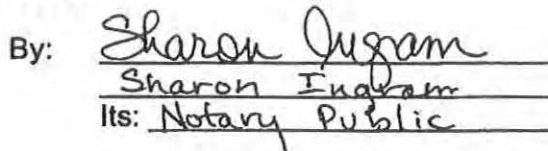 By: Sharon Ingram
Sharon Ingram
Its: Notary Public